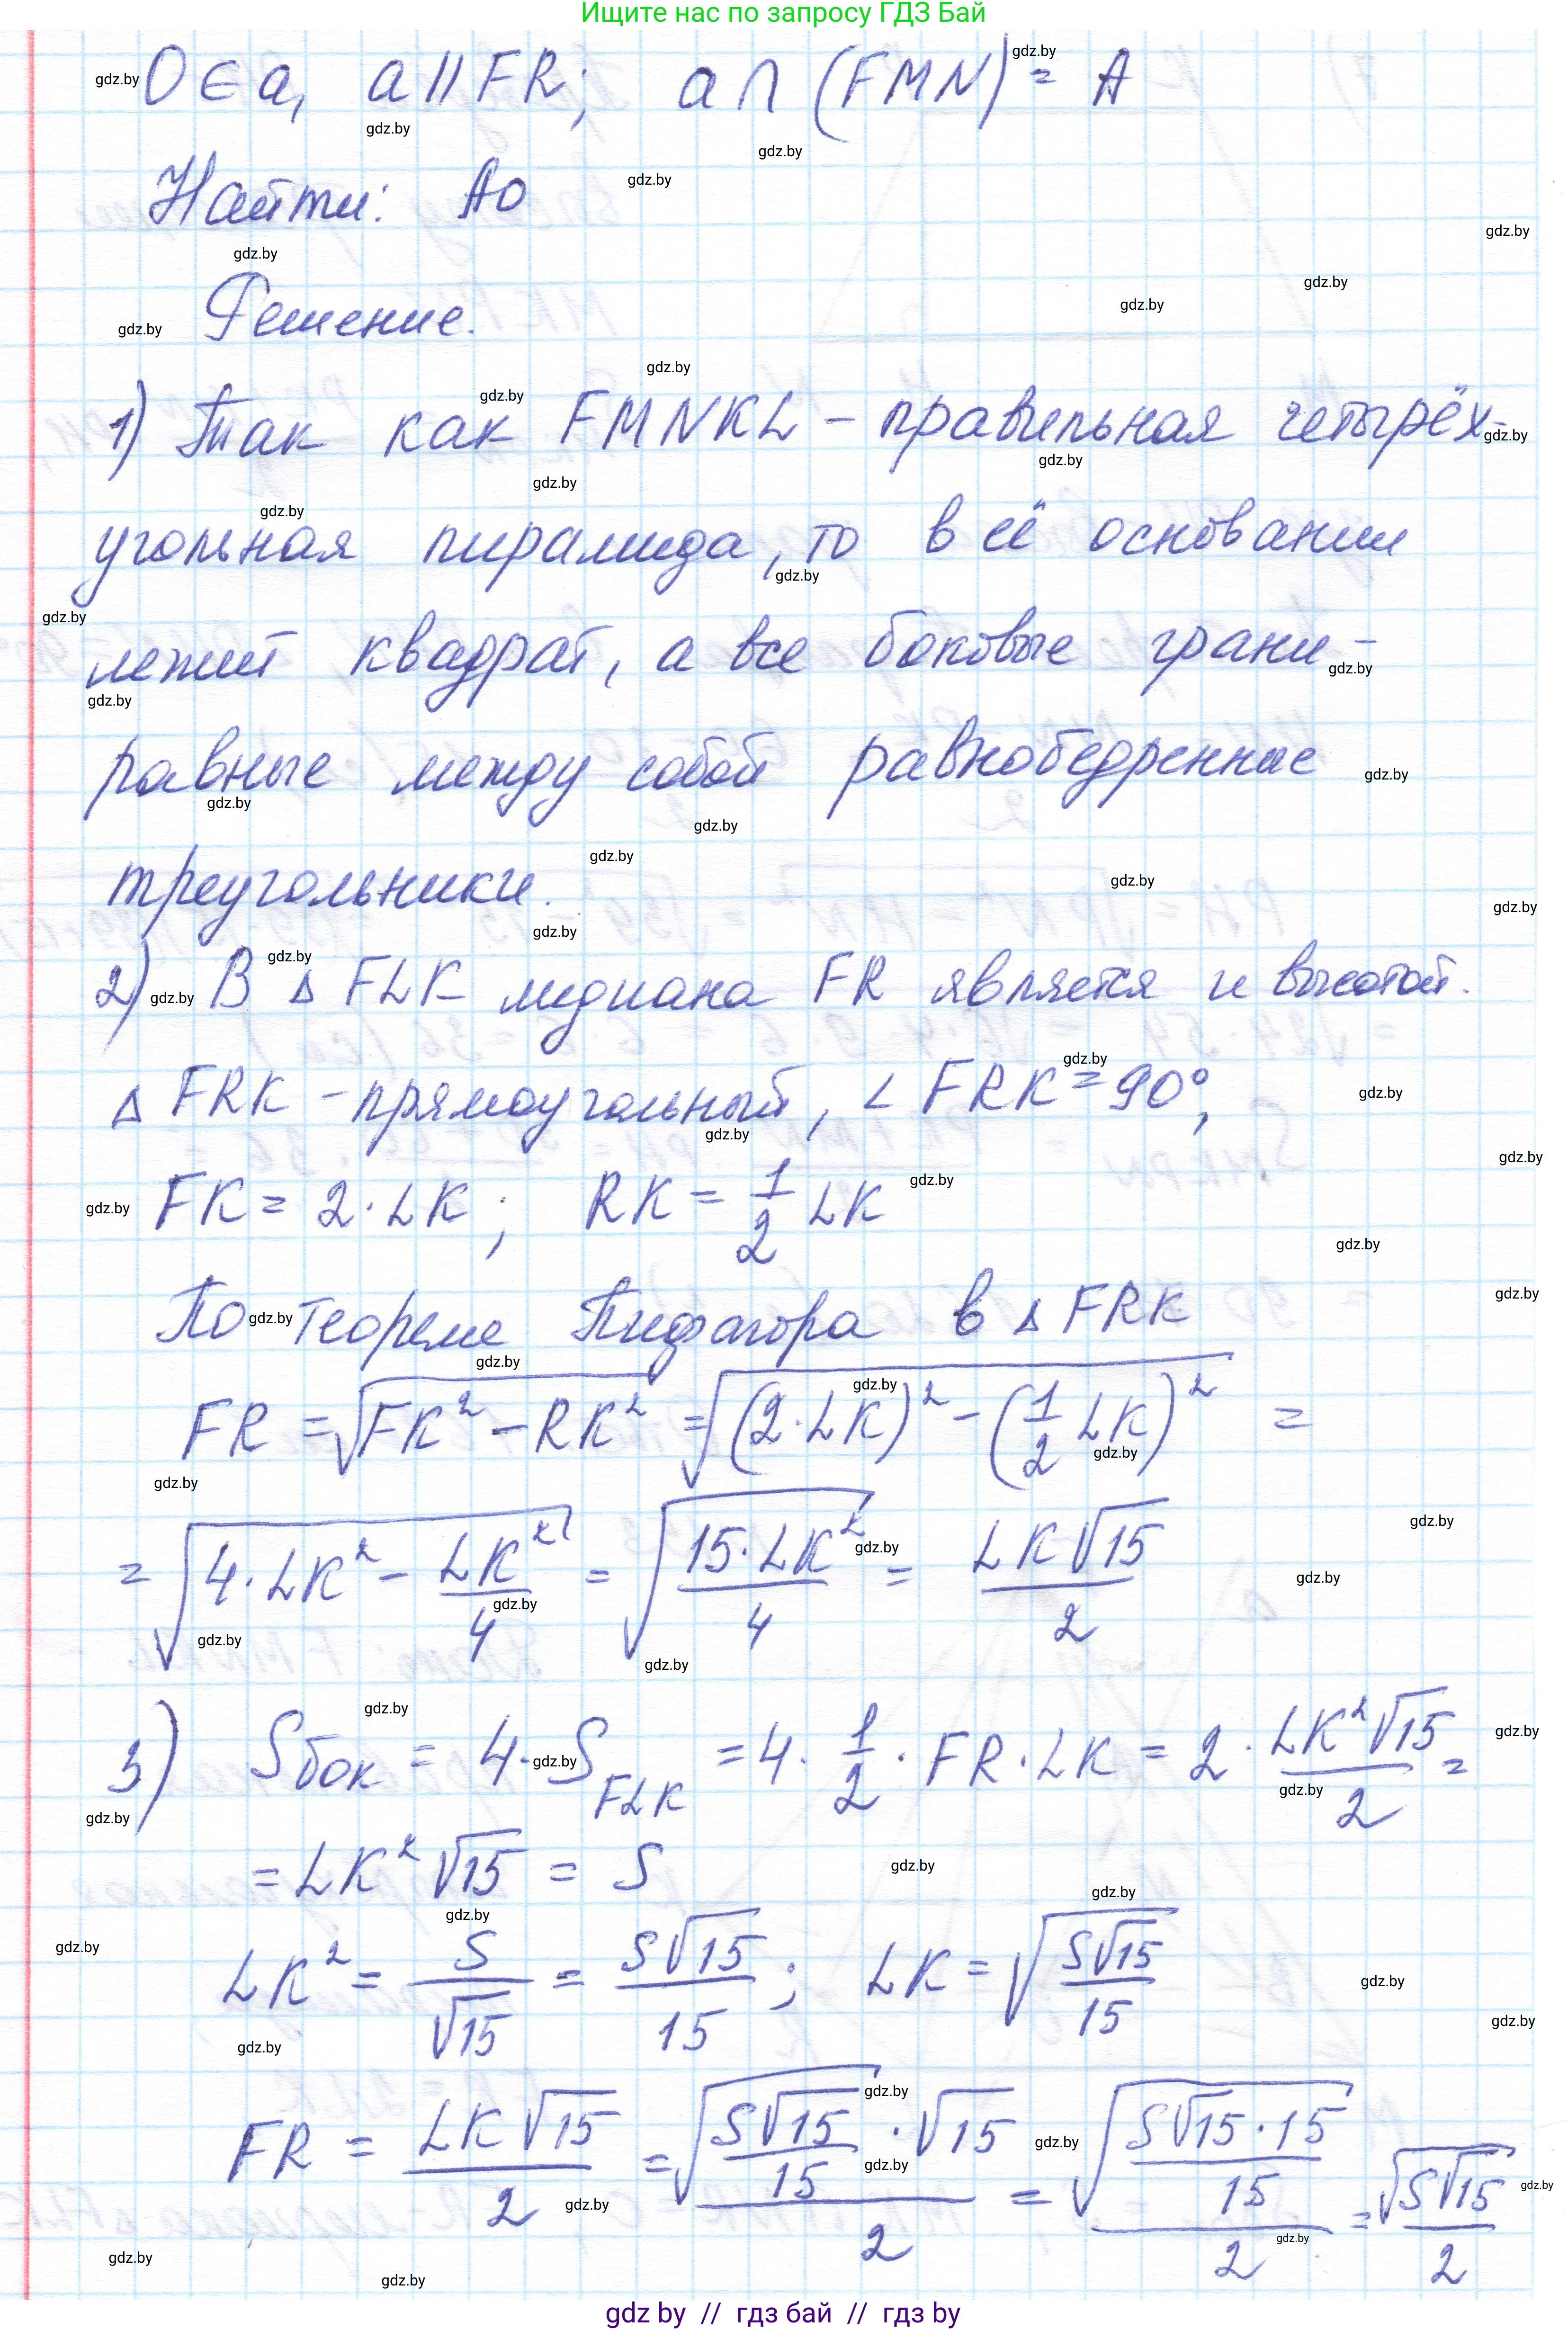 Ищите нас по запросу ГДЗ Бай
O ∈ a, a || FR; a ∩ (FMN) = A
Найти: AO
Решение.
1) Так как FMNKL – правильная четырёх-
угольная пирамида, то в её основании
лежит квадрат, а все боковые грани –
равные между собой равнобедренные
треугольники.
2) В Δ FLK медиана FR является и высотой.
Δ FRK – прямоугольный, ∠ FRK = 90°;
FK = 2 · LK; RK = 1/2 LK
По теореме Пифагора в Δ FRK
FR = √(FK² – RK²) = √((2·LK)² – (1/2 LK)²) =
= √(4·LK² – LK²/4) = √(15·LK²/4) = LK√15/2
3) Sбок = 4 · S FLK = 4 · 1/2 · FR · LK = 2 · LK²√15/2 =
= LK²√15 = S
LK² = S/√15 = S√15/15; LK = √(S√15/15)
FR = LK√15/2 = √(S√15/15) · √15/2 = √(S√15·15/15)/2 = √(S√15)/2
gdz by // гдз бай // гдз by